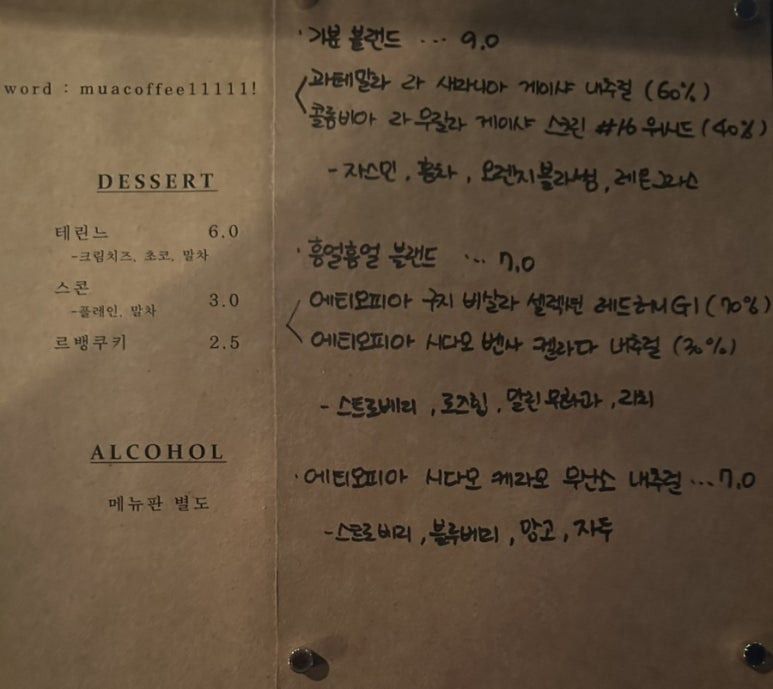 word : muacoffee11111!
DESSERT
테린느 6.0
-크림치즈, 초코, 말차
스콘 3.0
-플레인, 말차
르뱅쿠키 2.5
ALCOHOL
메뉴판 별도
· 기분 블랜드 ... 9.0
과테말라 라 세리니아 게이샤 내추럴 (60%)
콜롬비아 라 우잘라 게이샤 스크린 #16 워시드 (40%)
- 자스민, 홍차, 오렌지블라썸, 레몬그라스
· 흥얼흥얼 블랜드 ... 7.0
에티오피아 구지 비살라 셀렉션 레드허니 G1 (70%)
에티오피아 시다모 벤사 켈라다 내추럴 (30%)
- 스트로베리, 로즈힙, 말린무화과, 리치
· 에티오피아 시다모 케라모 무산소 내추럴 ... 7.0
- 스트로베리, 블루베리, 망고, 자두